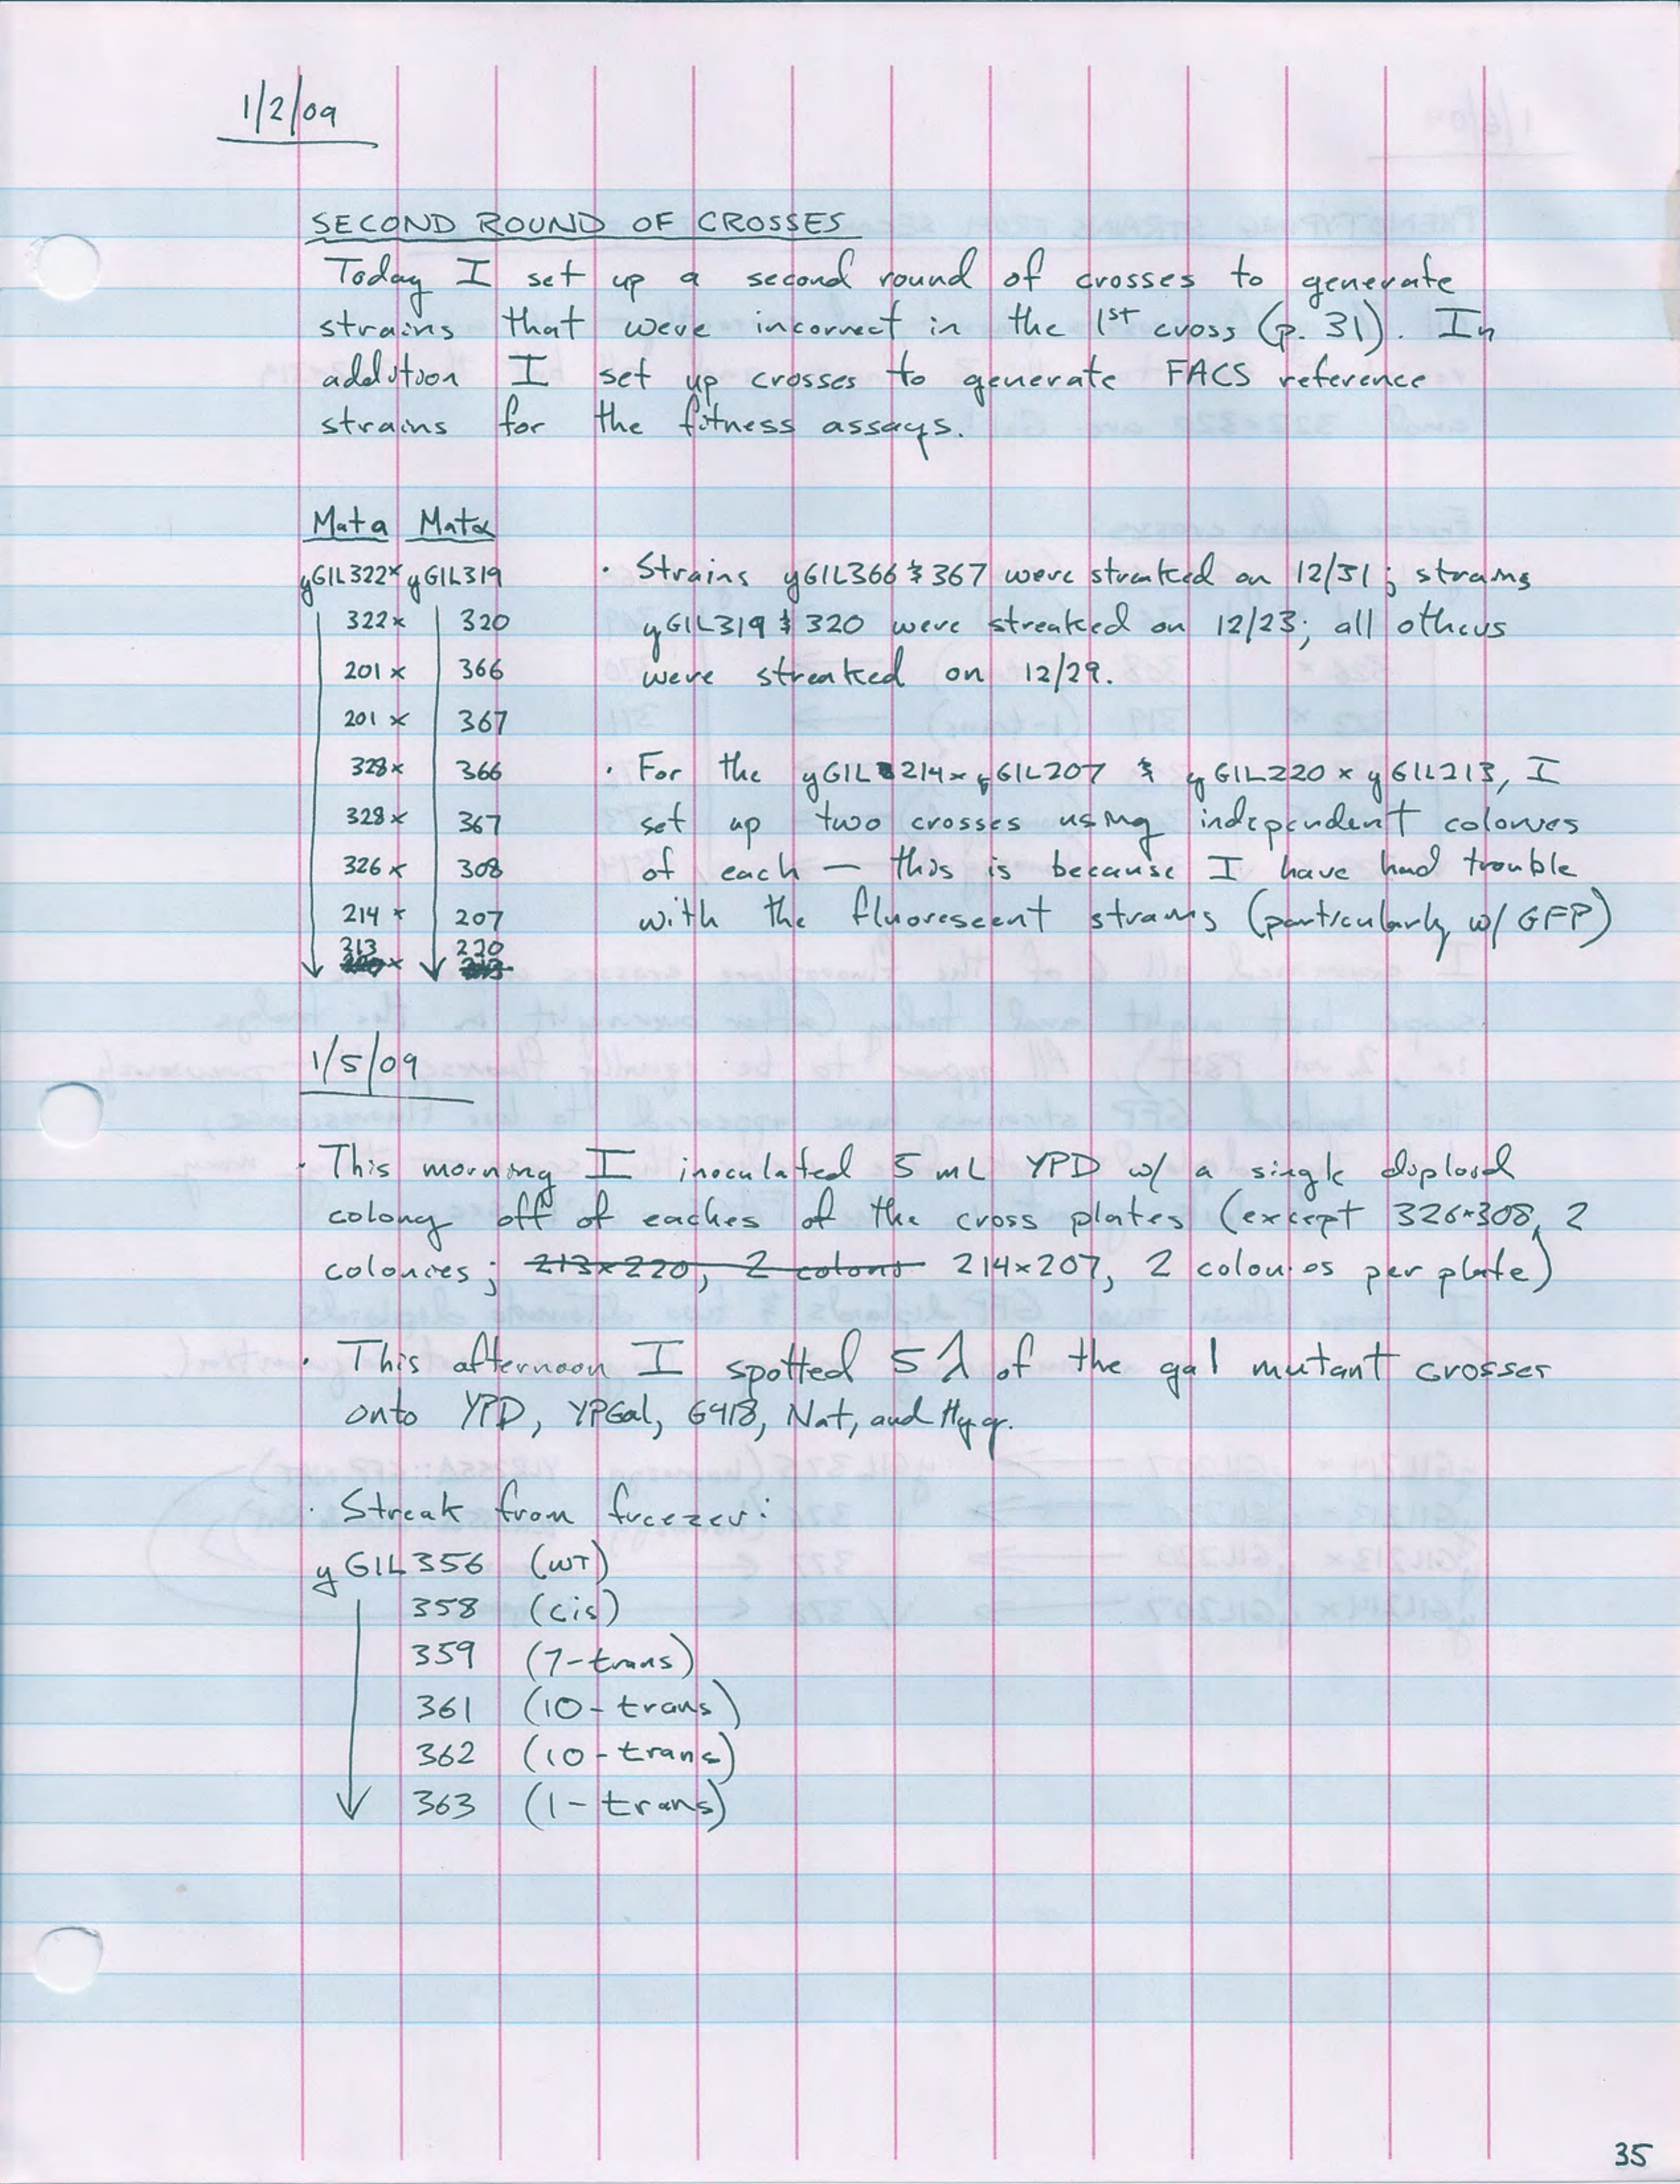 1/2/09
SECOND ROUND OF CROSSES
Today I set up a second round of crosses to generate
strains that were incorrect in the 1st cross (p. 31). In
addition I set up crosses to generate FACS reference
strains for the fitness assays.
Mat a Mat α
yGIL322 x yGIL319
322 x 320
201 x 366
201 x 367
328 x 366
328 x 367
326 x 308
214 x 207
213 x 220
· Strains yGIL366 & 367 were streaked on 12/31; strains
yGIL319 & 320 were streaked on 12/23; all others
were streaked on 12/29.
· For the yGIL214 x yGIL207 & yGIL220 x yGIL213, I
set up two crosses using independent colonies
of each — this is because I have had trouble
with the fluorescent strains (particularly w/ GFP)
1/5/09
· This morning I inoculated 5 mL YPD w/ a single diploid
colony off of eaches of the cross plates (except 326x308, 2
colonies; 213x220, 2 colons 214x207, 2 colonies per plate)
· This afternoon I spotted 5 λ of the gal mutant crosses
onto YPD, YPGal, G418, Nat, and Hygr.
· Streak from freezer:
yGIL356 (WT)
358 (cis)
359 (7-trans)
361 (10-trans)
362 (10-trans)
363 (1-trans)
35